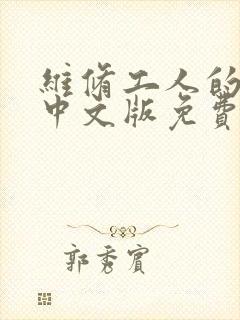 維脩工人的
中文版免費
郭秀賓